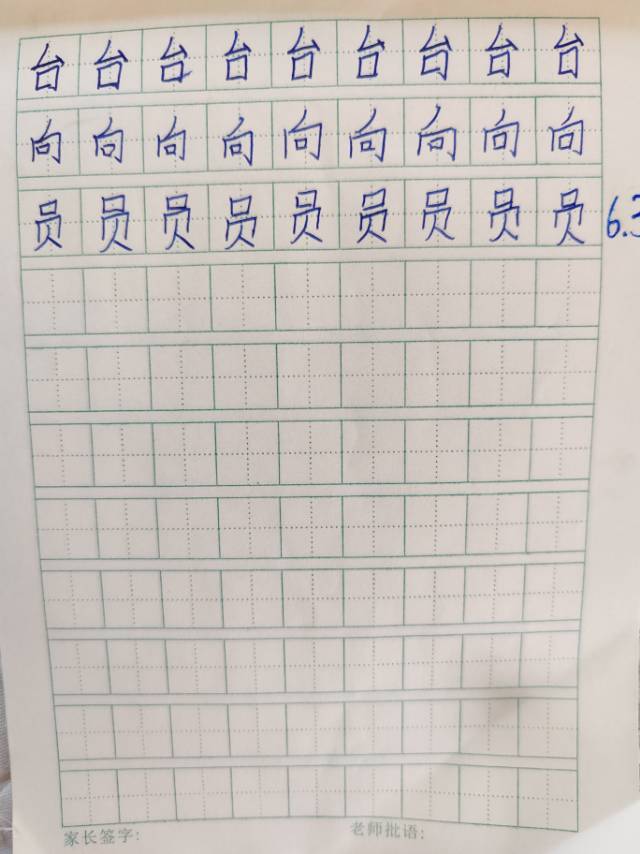 台台台台台台台台台
向向向向向向向向向
员员员员员员员员员 6.3
家长签字: 老师批语: